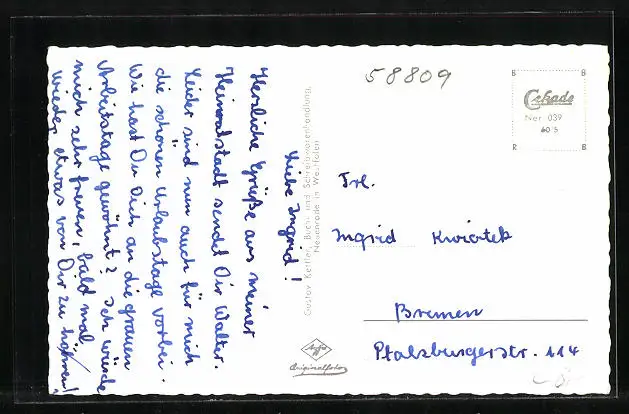 58809
Liebe Ingrid!
Herzliche Grüße aus meiner
Heimatstadt sendet Dir Walter.
Leider sind nun auch für mich
die schönen Urlaubstage vorbei.
Wie hast Du Dich an die grauen
Arbeitstage gewöhnt? Ich würde
mich sehr freuen, bald mal
wieder etwas von Dir zu hören!
Gustav Kettler, Buch- und Schreibwarenhandlung,
Neuenrade in Westfalen
Agfa
Originalfoto
B B
Cekade
Ner 039
60/5
R B
Frl.
Ingrid Kwiatek
Bremen
Pfalzburgerstr. 114